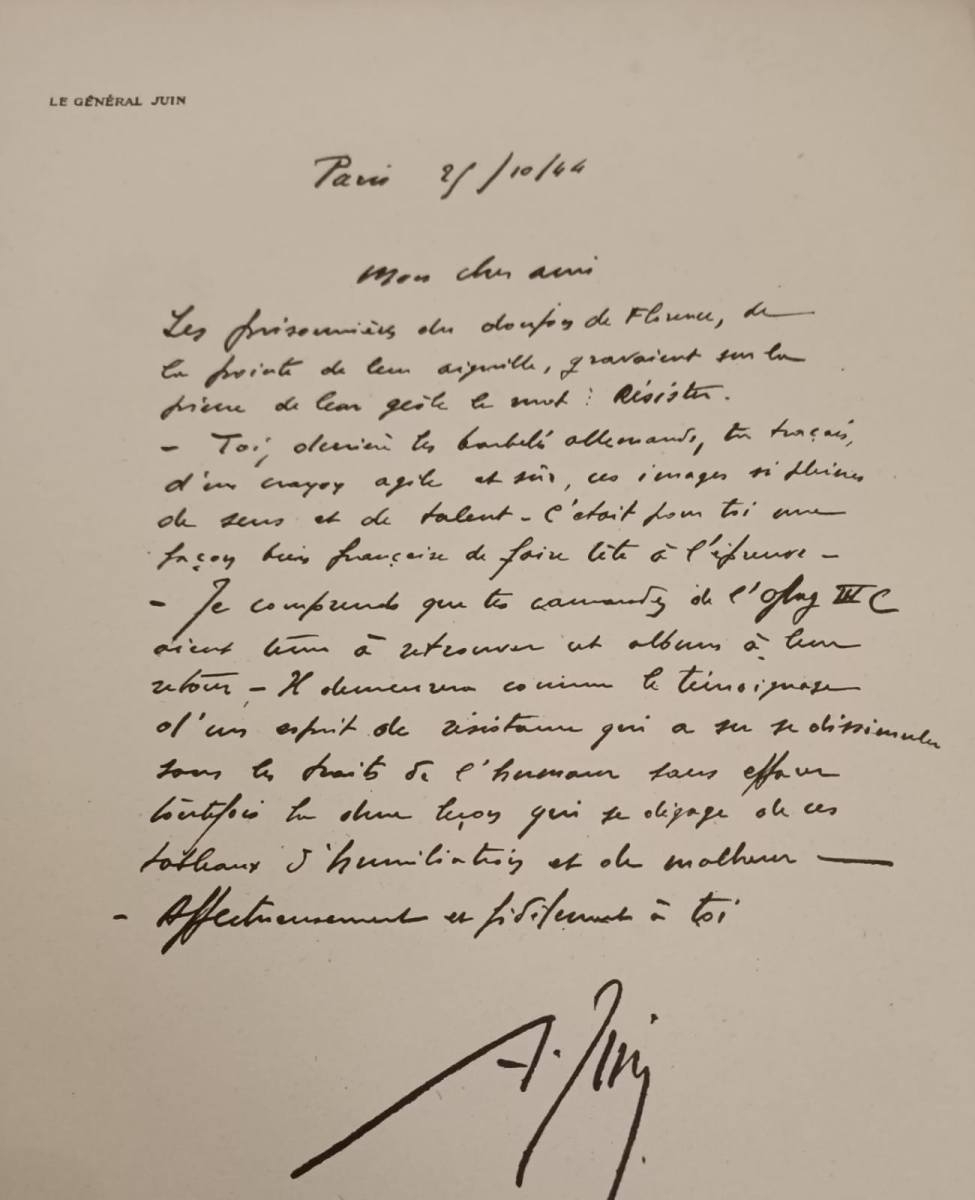 LE GÉNÉRAL JUIN
Paris 25/10/44
Mon cher ami
Les prisonnières du donjon de Florence, de
la pointe de leur aiguille, gravaient sur la
pierre de leur geôle le mot : Résister.
- Toi, derrière les barbelés allemands, tu traçais,
d'un crayon agile et sûr, ces images si pleines
de sens et de talent - C'était pour toi une
façon bien française de faire tête à l'épreuve -
- Je comprends que tes camarades de l'Oflag III C
aient tenu à retrouver cet album à leur
retour - Il demeurera comme le témoignage
d'un esprit de résistance qui a su se dissimuler
sous les traits de l'humour sans effacer
toutefois la dure leçon qui se dégage de ces
tableaux d'humiliation et de malheur -
- Affectueusement et fidèlement à toi
A. Juin